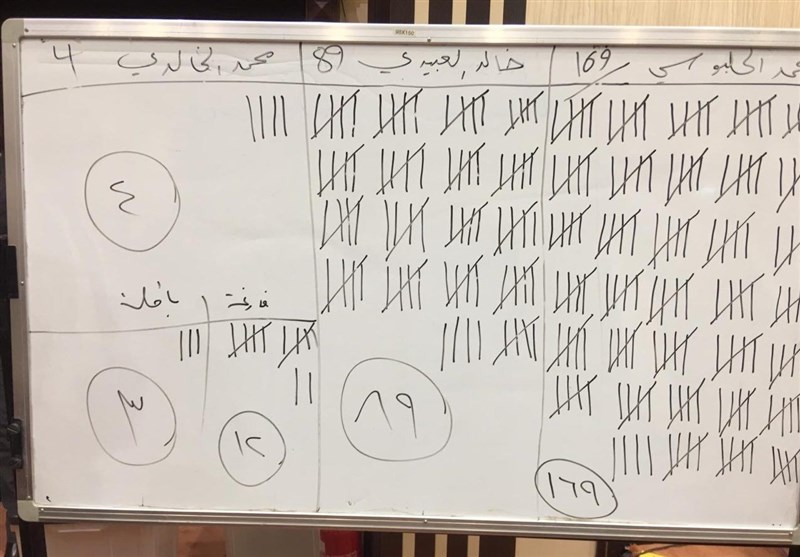 الحلبوسي 169
خالد العبيدي 89
محمد الخالدي 4
٤
فارغة
باطلة
٨٩
٣
١٢
١٦٩